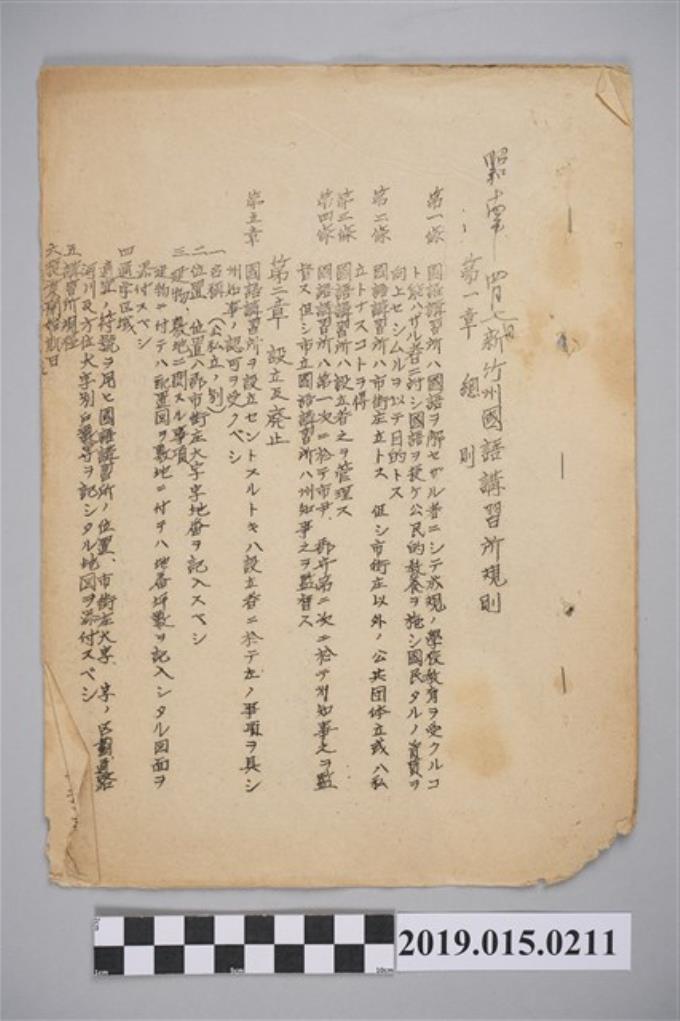 昭和 年四月七日新竹州國語講習所規則
第一章 總則
第一條 國語講習所ハ國語ヲ解セザル者ニシテ正規ノ學校教育ヲ受クルコ
ト能ハザル者ニ對シ國語ヲ授ケ公民的教養ヲ施シ國民タルノ資質ヲ
向上セシムルヲ以テ目的トス
第二條 國語講習所ハ市街庄立トス 但シ市街庄以外ノ公共団体立或ハ私
立トナスコトヲ得
第三條 國語講習所ハ設立者之ヲ管理ス
第四條 國語講習所ハ第一次ニ於テ市尹、郡守第二次ニ於テ州知事之ヲ監
督ス 但シ市立國語講習所ハ州知事之ヲ監督ス
第二章 設立及廃止
第五章 國語講習所ヲ設立セントスルトキハ設立者ニ於テ左ノ事項ヲ具シ
州知事ノ認可ヲ受クベシ
一 名稱 (公私立ノ別)
二 位置 位置ハ郡市街庄大字字地番ヲ記入スベシ
三 建物、敷地ニ関スル事項
建物ニ付テハ配置図ヲ敷地ニ付テハ地番坪數ヲ記入シタル図面ヲ
添付スベシ
四 通學区域
適宜ノ符號ヲ用ヒ國語講習所ノ位置、市街庄大字、字ノ区劃道路
河川及方位大字別戸數等ヲ記シタル地図ヲ添付スベシ
五 講習所規程
六 開始期日
2019.015.0211
1cm
5cm
10cm